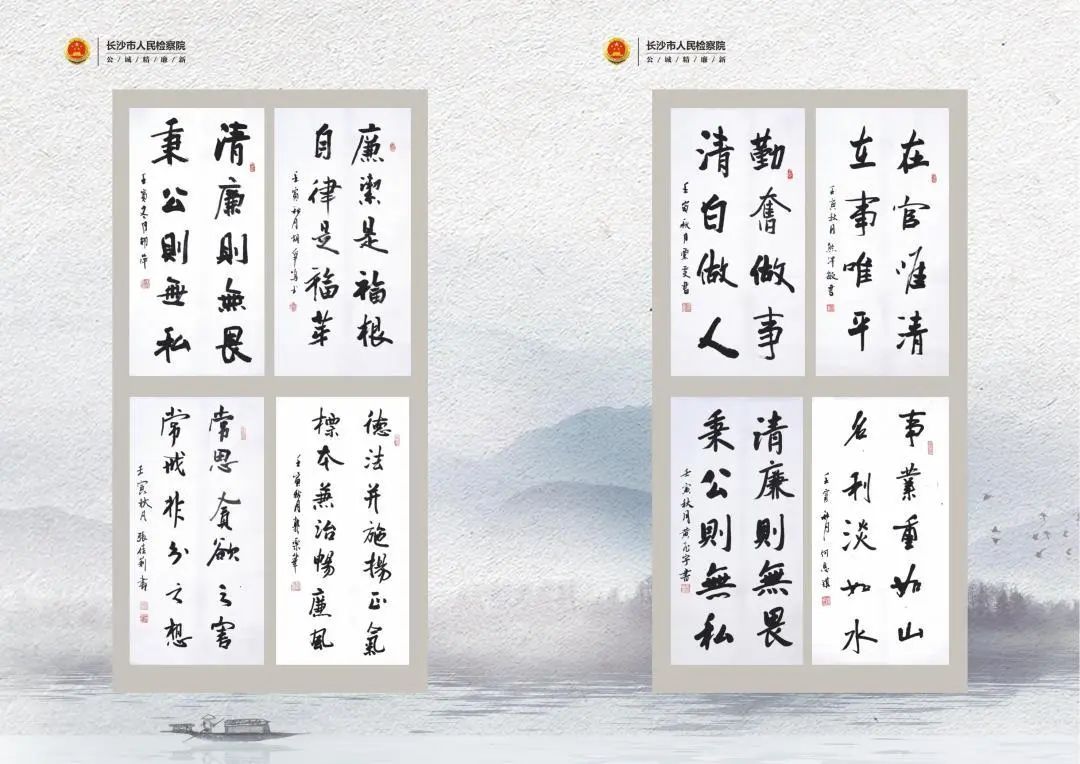 长沙市人民检察院
公/诚/精/廉/新
清廉則無畏
秉公則無私
壬寅冬月
廉潔是福根
自律是福萃
壬寅秋月
常思貪欲之害
常戒非分之想
壬寅秋月 張佳莉書
德法并施揚正氣
標本兼治暢廉風
壬寅秋月
长沙市人民检察院
公/诚/精/廉/新
勤奮做事
清白做人
壬寅秋月 書
在官唯清
立事唯平
壬寅秋月 敏書
清廉則無畏
秉公則無私
壬寅秋月黄 宇書
事業重如山
名利淡如水
壬寅秋月 何